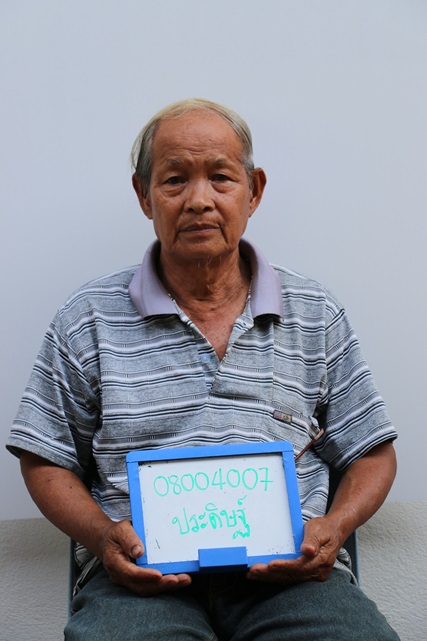 08004007
ประดิษฐ์